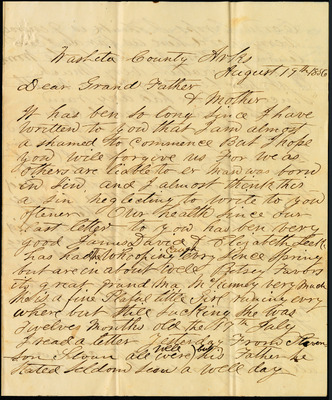 Washita County Arks
August 19th 1856
Dear Grand Father
& Mother
It has ben so long since I have
written to you that I am almost
a shamed to commence But I hope
you will forgive us for we as
others are liable to er man was born
in Sin and I almost think his
a sin neglecting to write to you
oftener Our health since our
last letter to you has ben very
good James David & Elizabeth
has had the whooping Cough ever since Spring
but are in about well Betsey favors
its great grand Ma very much
She is a fine Playful little Girl runing every
where but still sucking She was
twelve months old the 17th July
I read a letter Yesterday From
son all were well but his Father he
stated Seldom Saw a well day